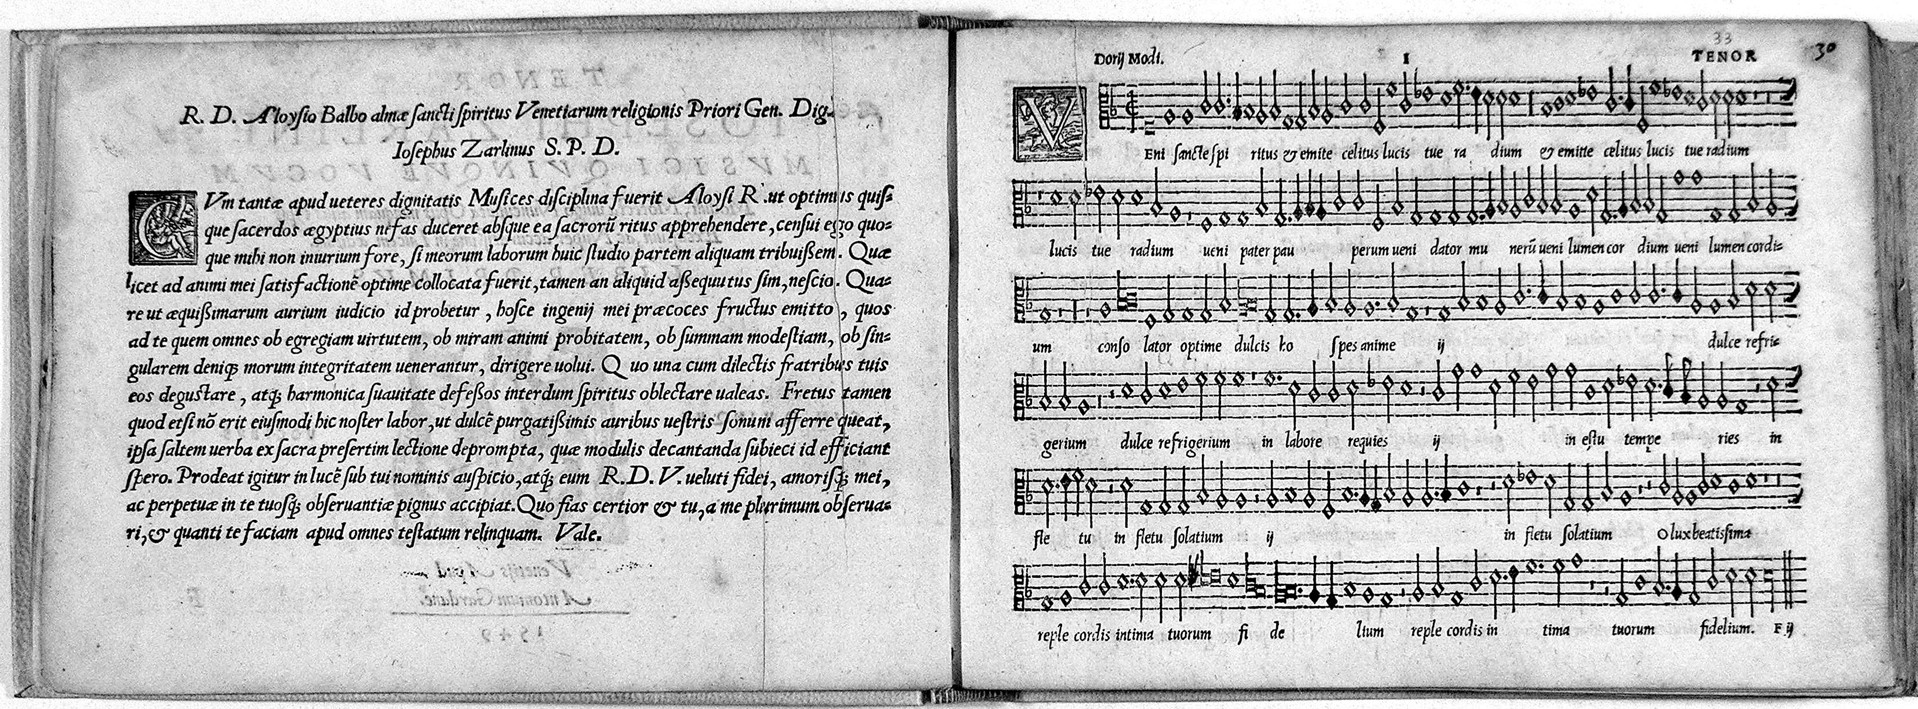 R. D. Aloysio Balbo almæ sancti spiritus Venetiarum religionis Priori Gen. Dig.
Iosephus Zarlinus S. P. D.
CVm tantæ apud ueteres dignitatis Musices disciplina fuerit Aloysi R. ut optimus quis=
que sacerdos ægyptius nefas duceret absque ea sacrorũ ritus apprehendere, censui ego quo=
que mihi non iniurium fore, si meorum laborum huic studio partem aliquam tribuissem. Quæ
licet ad animi mei satisfactionẽ optime collocata fuerit, tamen an aliquid assequutus sim, nescio. Qua=
re ut æquissimarum aurium iudicio id probetur, hosce ingenij mei præcoces fructus emitto, quos
ad te quem omnes ob egregiam uirtutem, ob miram animi probitatem, ob summam modestiam, ob sin=
gularem deniqꝫ morum integritatem uenerantur, dirigere uolui. Quo una cum dilectis fratribus tuis
eos degustare, atqꝫ harmonica suauitate defessos interdum spiritus oblectare ualeas. Fretus tamen
quod etsi nõ erit eiusmodi hic noster labor, ut dulcẽ purgatissimis auribus uestris sonum afferre queat,
ipsa saltem uerba ex sacra presertim lectione deprompta, quæ modulis decantanda subieci id efficiant
spero. Prodeat igitur in lucẽ sub tui nominis auspicio, atqꝫ eum R. D. V. ueluti fidei, amorisqꝫ mei,
ac perpetuæ in te tuosqꝫ obseruantiæ pignus accipiat. Quo fias certior & tu, a me plurimum obserua=
ri, & quanti te faciam apud omnes testatum relinquam. Vale.
33
Dorij Modi. I TENOR 30
VEni sancte spi ritus & emite celitus lucis tue ra dium & emitte cælitus lucis tue radium
lucis tue radium ueni pater pau perum ueni dator mu nerũ ueni lumen cor dium ueni lumen cordi=
um conso lator optime dulcis ho spes anime ij dulce refri=
gerium dulce refrigerium in labore requies ij in estu tempe ries in
fle tu in fletu solatium ij in fletu solatium O lux beatissima
reple cordis intima tuorum fi de lium reple cordis in tima tuorum fidelium. F ij